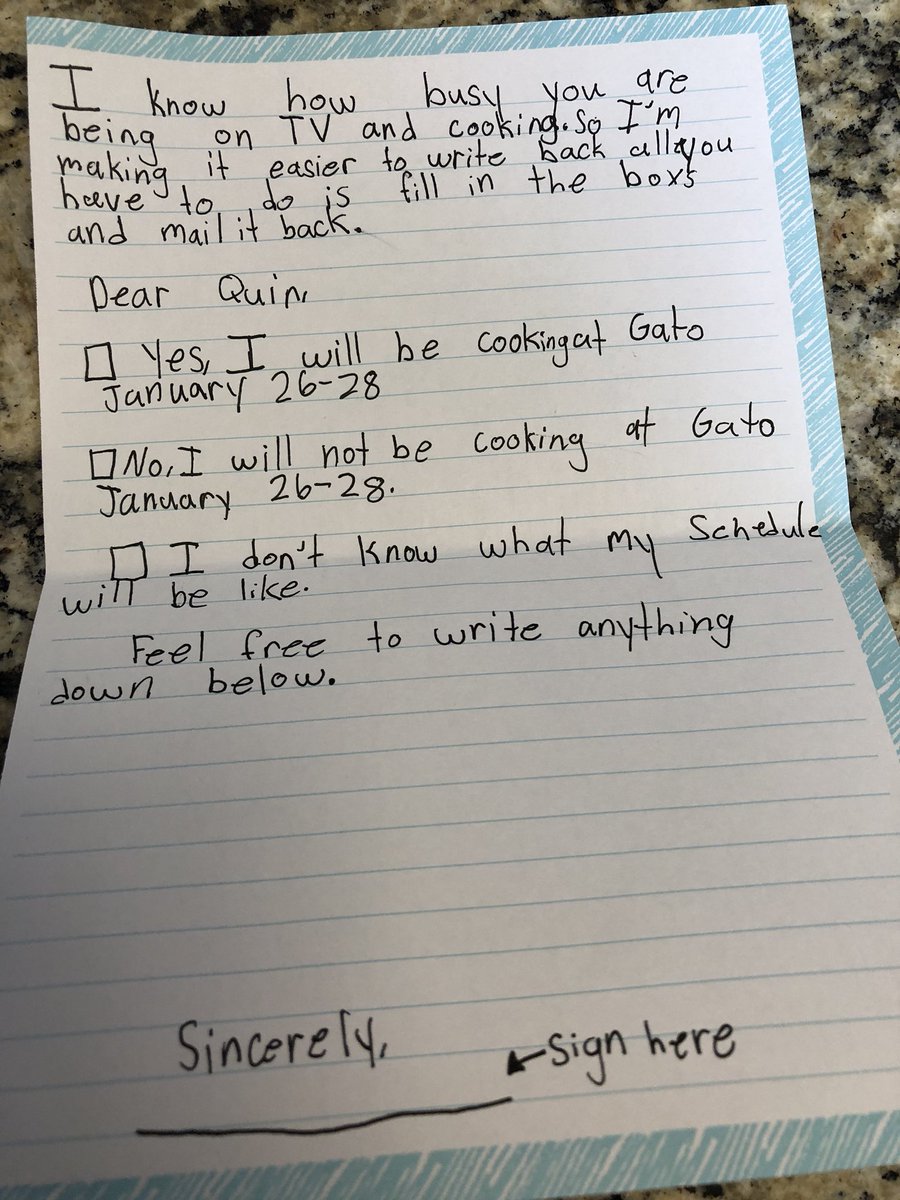 I know how busy you are
being on TV and cooking. So I'm
making it easier to write back all you
have to do is fill in the boxs
and mail it back.
Dear Quin,
Yes, I will be cooking at Gato
January 26-28
No, I will not be cooking at Gato
January 26-28.
I don't know what my Schedule
will be like.
Feel free to write anything
down below.
Sincerely,
Sign here